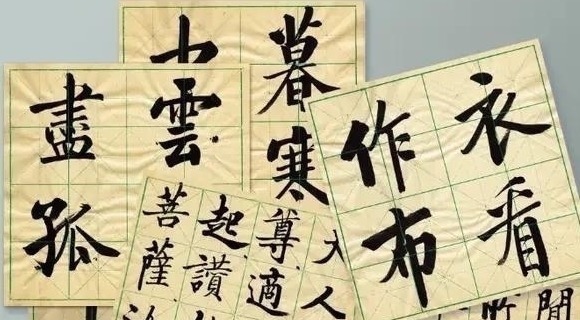 暮寒
雲
盡孤
衣看
作布
聞
人
尊適
起讚
菩薩